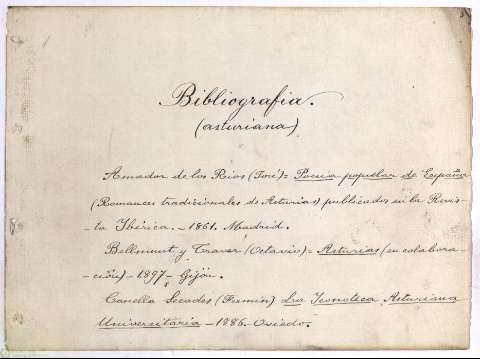 Bibliografia.
(asturiana)
Amador de los Rios (José)= Poesia popular de España
(Romances tradicionales de Asturias) publicados en la Revis-
ta Ibérica. - 1861. Madrid.
Bellmunt y Traver (Octavio)= Asturias (en colabora-
-ción) - 1897 - Gijón.
Canella Secades (Fermin) La Iconoteca Asturiana
Universitaria - 1886. Oviedo.